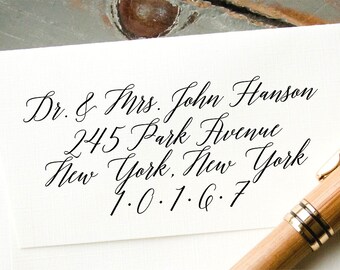 Dr. & Mrs. John Hanson
245 Park Avenue
New York, New York
1·0·1·6·7